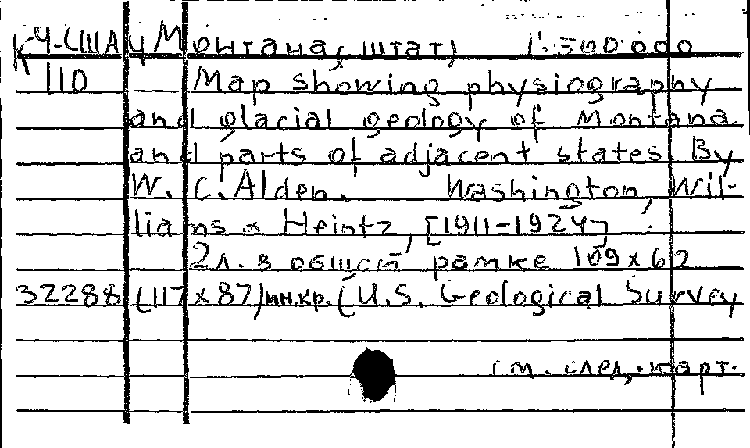 К4-США 4 Монтана (штат) 1:500 000
110 Map showing physiography
and glacial geology of Montana
and parts of adjacent states By
W. C. Alden. Washington, Wil-
liams & Heintz, [1911-1924]
2л. в общей рамке 109 x 62
32288 (117 x 87) мн.кр. (U.S. Geological Survey
См. след. карт.